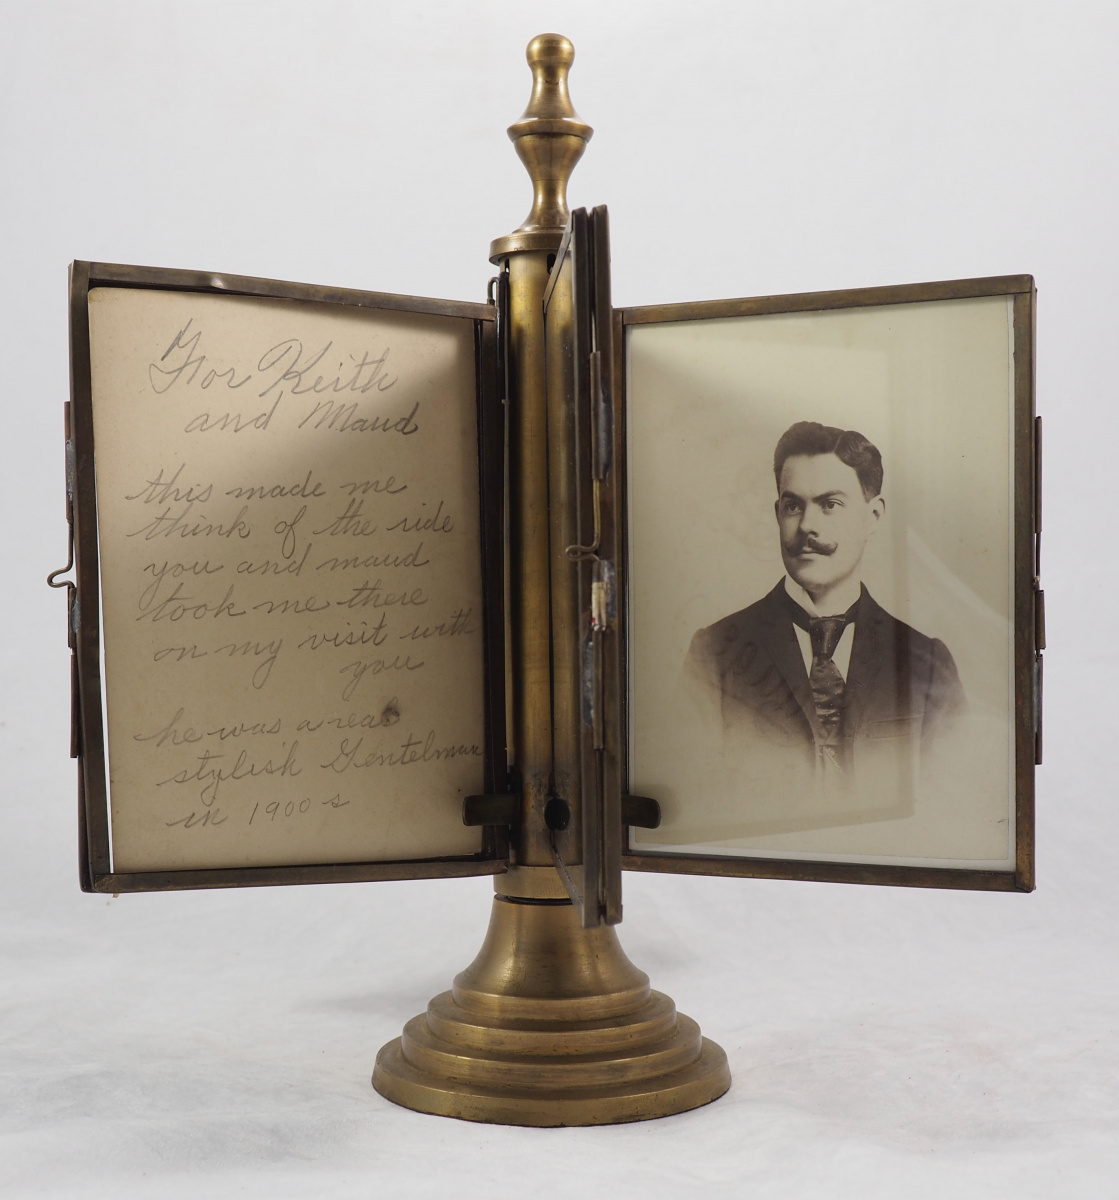 For Keith
and Maud
this made me
think of the ride
you and maud
took me there
on my visit with
you
he was a real
stylish Gentelman
in 1900s